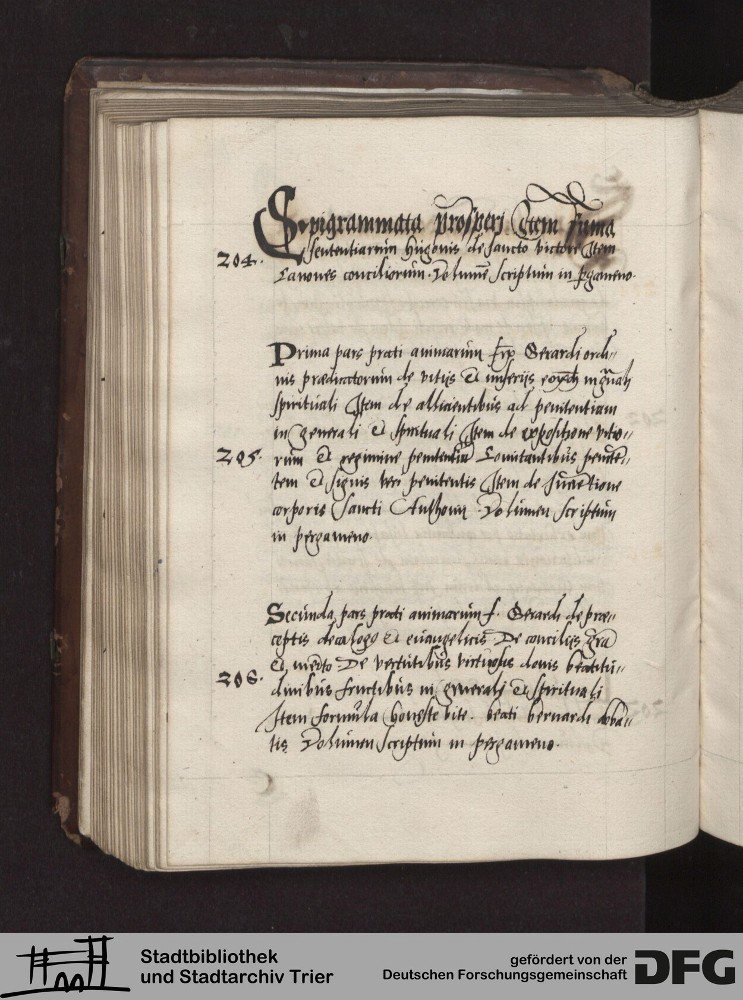 Epigrammata prosperj Item suma
204. sententiarum Hugonis de sancto victore Item
Canones conciliorum. Volumē scriptum in pgameno.
Prima pars prati animarum Gerardi ordi-
nis prædicatorum de vitijs & miserijs
spirituali Item de allicientibus ad penitentiam
in generali & spirituali Item de expositione vitio-
205. rum & regimine penitentiū penitē-
tem & signis veri penitentis Item de
corporis sancti Anthonii. Volumen scriptum
in pergameno.
Secunda pars prati animarum f. Gerardi de præ-
ceptis decalogo & euangelicis De concilijs gra
& merito De vertutibus virtuosus donis beatitu-
206. dinibus fructibus in generalj & spiritualj
Item formula honeste vite. beati bernardi abba-
tis Volumen scriptum in pergameno.
Stadtbibliothek
und Stadtarchiv Trier
gefördert von der
Deutschen Forschungsgemeinschaft
DFG